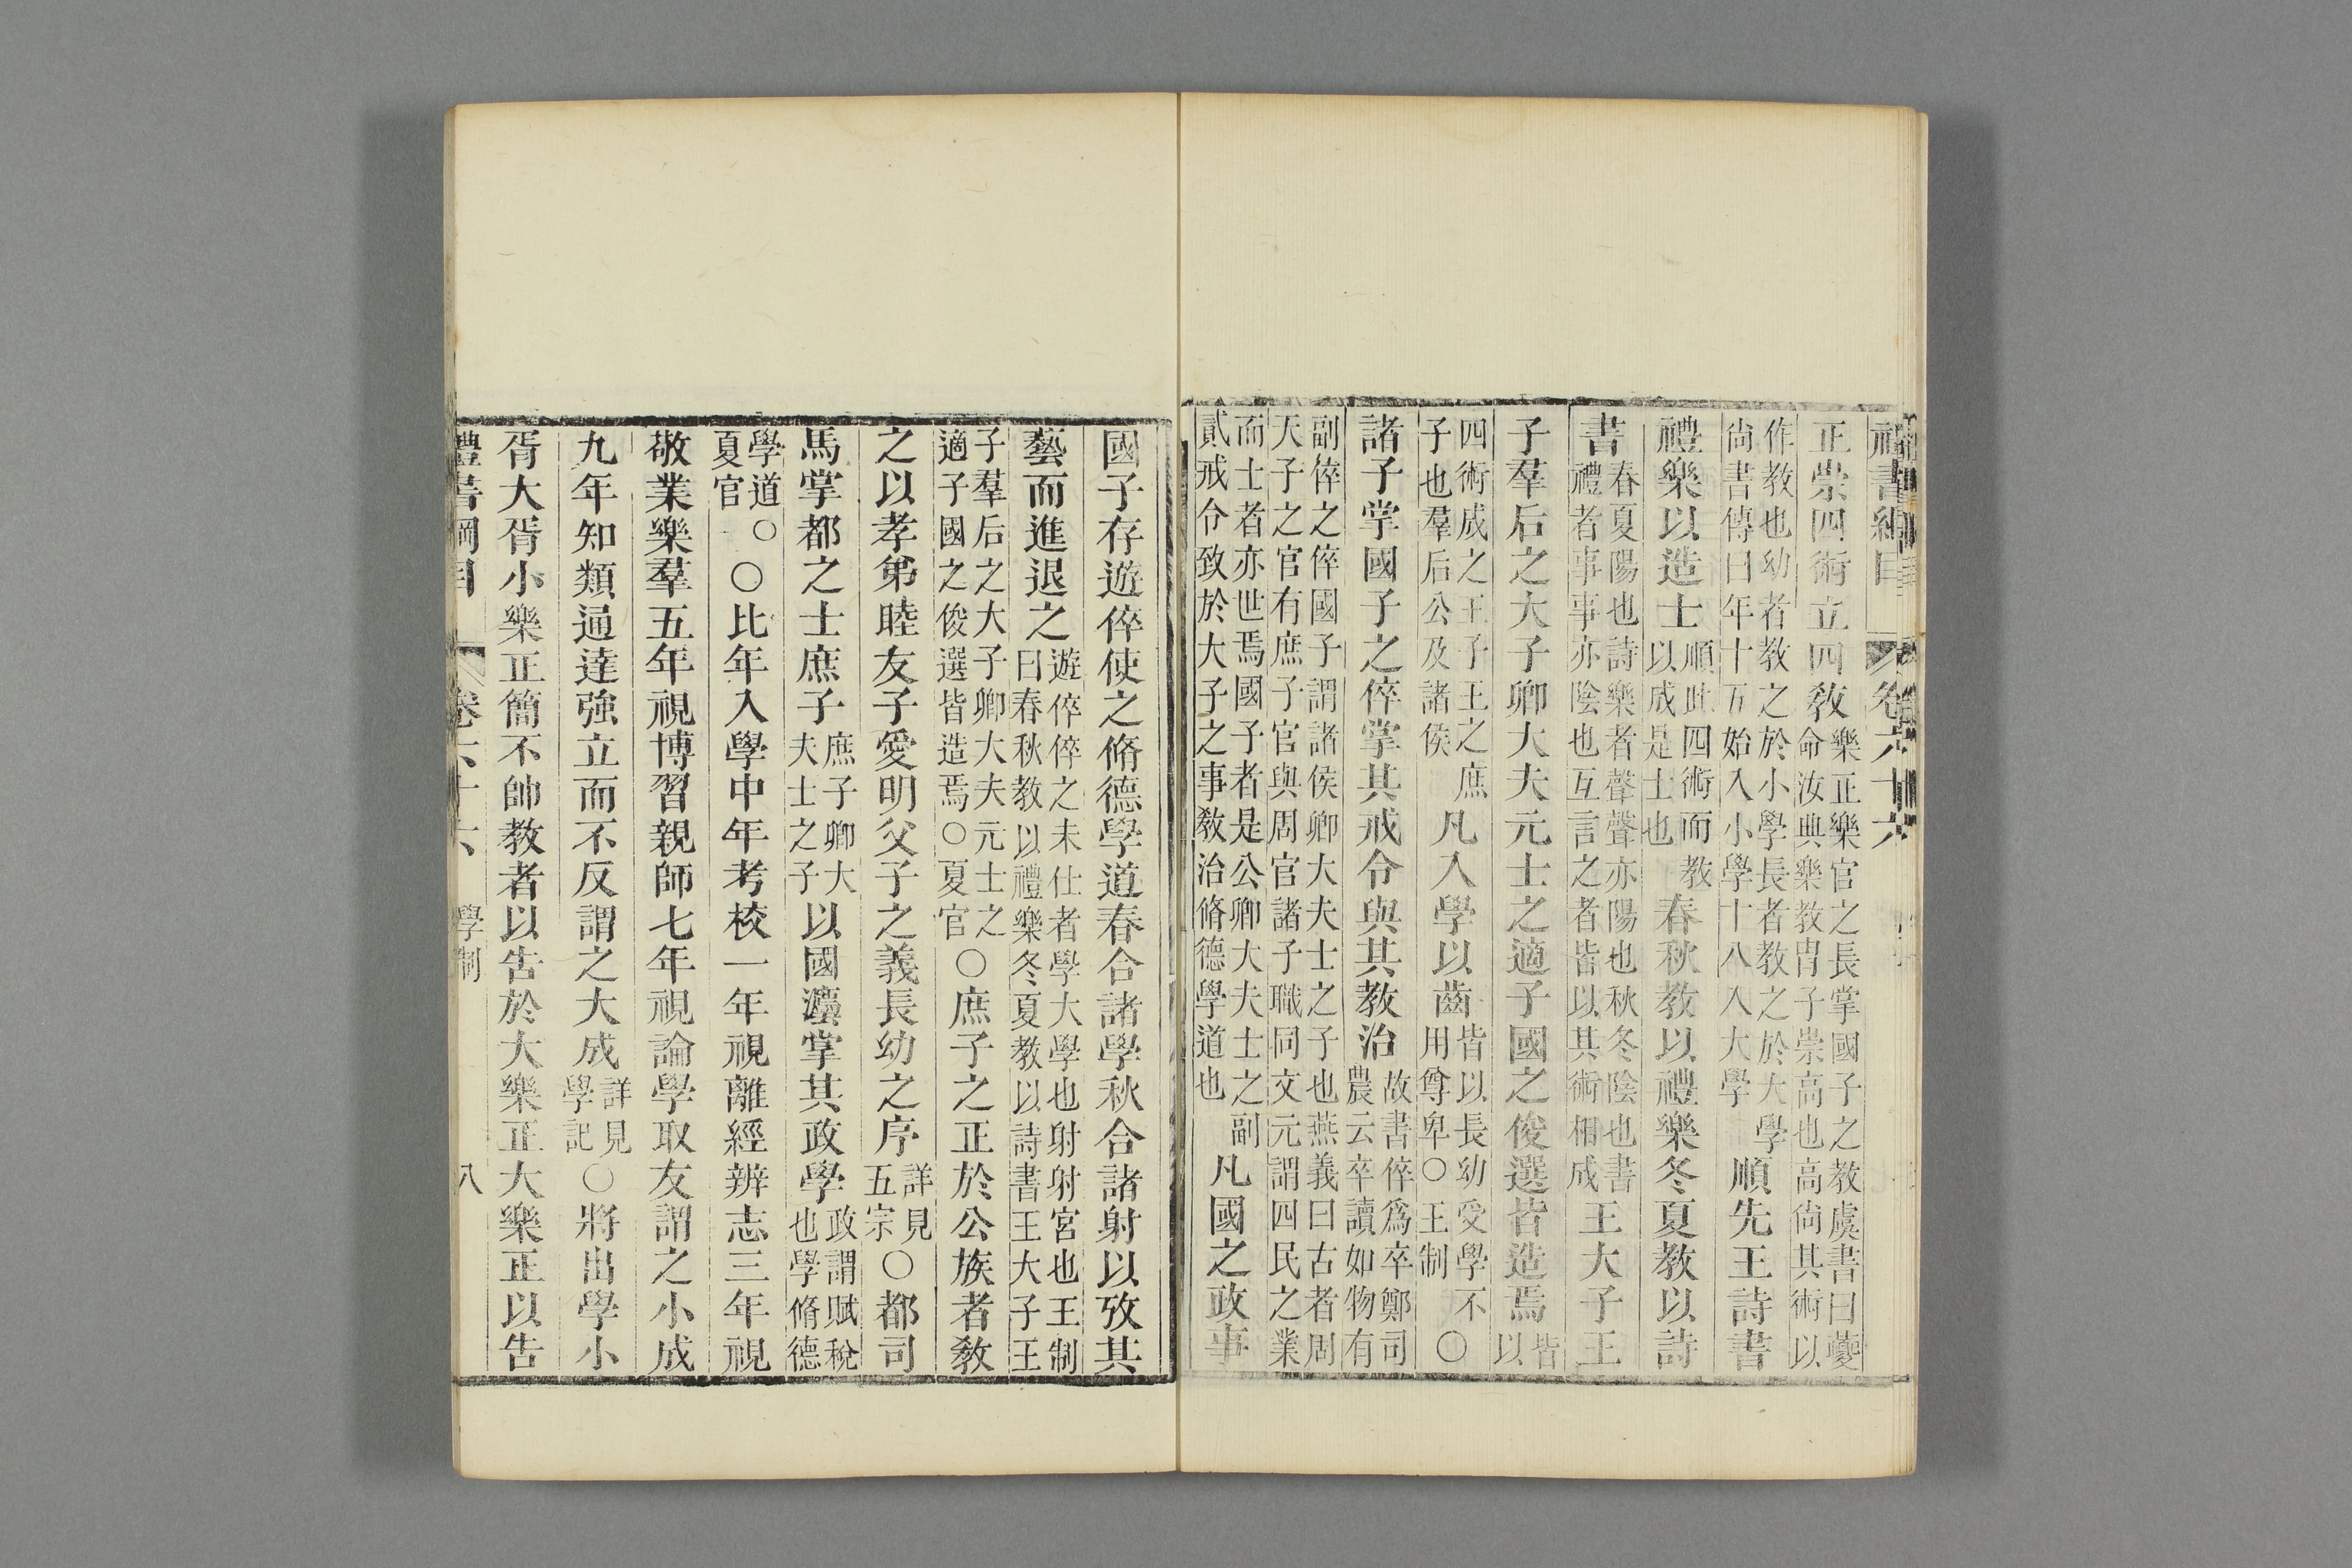 禮書綱目 卷六十六
正崇四術立四教樂正樂官之長掌國子之教虞書曰夔命汝典樂教胄子崇高也高尚其術以
作教也幼者教之於小學長者教之於大學尚書傳曰年十五始入小學十八入大學順先王詩書
禮樂以造士順此四術而教以成是士也春秋教以禮樂冬夏教以詩
書春夏陽也詩樂者聲聲亦陽也秋冬陰也書禮者事事亦陰也互言之者皆以其術相成王大子王
子羣后之大子卿大夫元士之適子國之俊選皆造焉皆以
四術成之王子王之庶子也羣后公及諸侯凡入學以齒皆以長幼受學不用尊卑○王制○
諸子掌國子之倅掌其戒令與其教治故書倅爲卒鄭司農云卒讀如物有
副倅之倅國子謂諸侯卿大夫士之子也燕義曰古者周天子之官有庶子官與周官諸子職同文元謂四民之業
而士者亦世焉國子者是公卿大夫士之副貳戒令致於大子之事教治脩德學道也凡國之政事
國子存遊倅使之脩德學道春合諸學秋合諸射以攷其
藝而進退之遊倅倅之未仕者學大學也射射宮也王制曰春秋教以禮樂冬夏教以詩書王大子王
子羣后之大子卿大夫元士之適子國之俊選皆造焉○夏官○庶子之正於公族者教
之以孝弟睦友子愛明父子之義長幼之序詳見五宗○都司
馬掌都之士庶子庶子卿大夫士之子以國灋掌其政學政謂賦稅也學脩德
學道○夏官○比年入學中年考校一年視離經辨志三年視
敬業樂羣五年視博習親師七年視論學取友謂之小成
九年知類通達強立而不反謂之大成詳見學記○將出學小
胥大胥小樂正簡不帥教者以告於大樂正大樂正以告
禮書綱目 卷六十六 學制 八